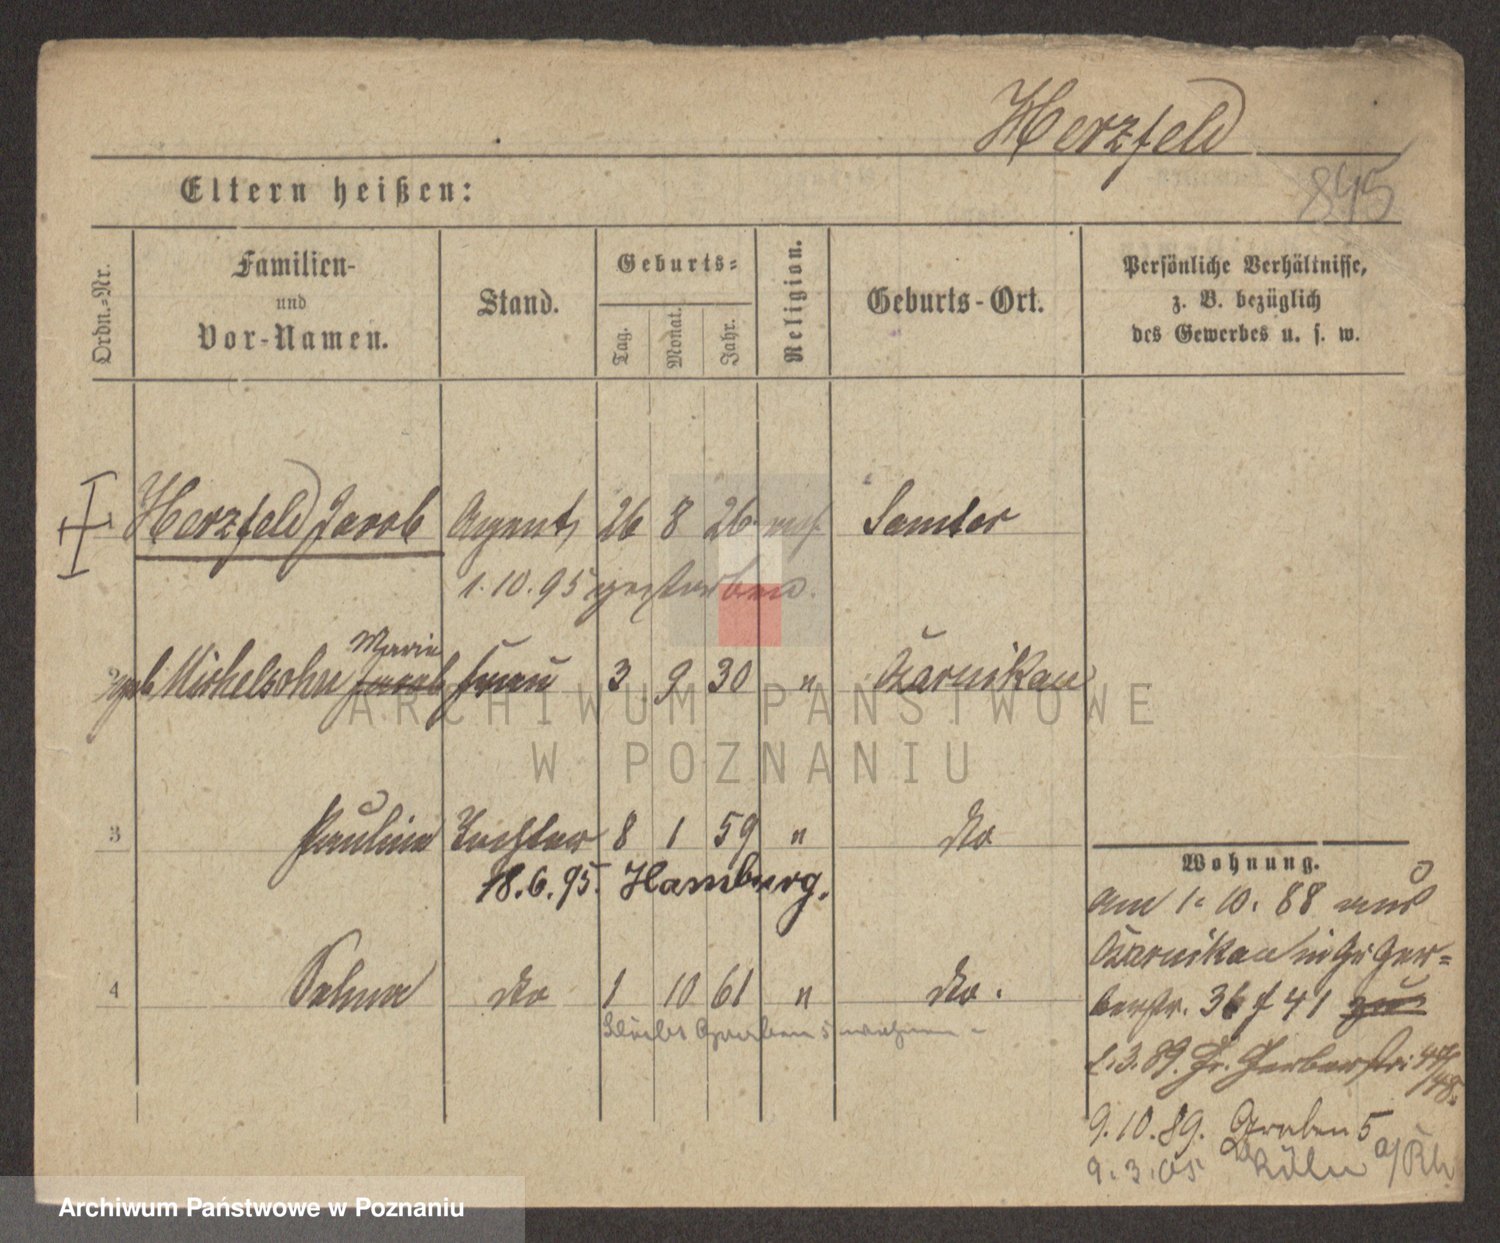 Herzfeld
845
Eltern heißen:
Ordn.-Nr.
Familien-
und
Vor-Namen.
Stand.
Geburts-
Tag.
Monat.
Jahr.
Religion.
Geburts-Ort.
Persönliche Verhältnisse,
z. B. bezüglich
des Gewerbes u. s. w.
Herzfeld Jacob Agent, 26 8 26 mos Samter
1.10.95 gestorben.
Marie
geb Michelsohn Jacob Frau 3 9 30 " Czarnikau
ARCHIWUM PAŃSTWOWE
W POZNANIU
3 Pauline Tochter 8 1 59 " do
18.6.95. Hamburg.
4 Selma do 1 10 61 " do.
bleibt Graben 5 wohnen
Wohnung.
am 1.10.88 aus
Czarnikau in Gr Ger=
berstr. 36 f 41
1.3.89. Gr. Gerberstr:
9.10.89. Graben 5
9.3.05 Köln a/Rh
Archiwum Państwowe w Poznaniu